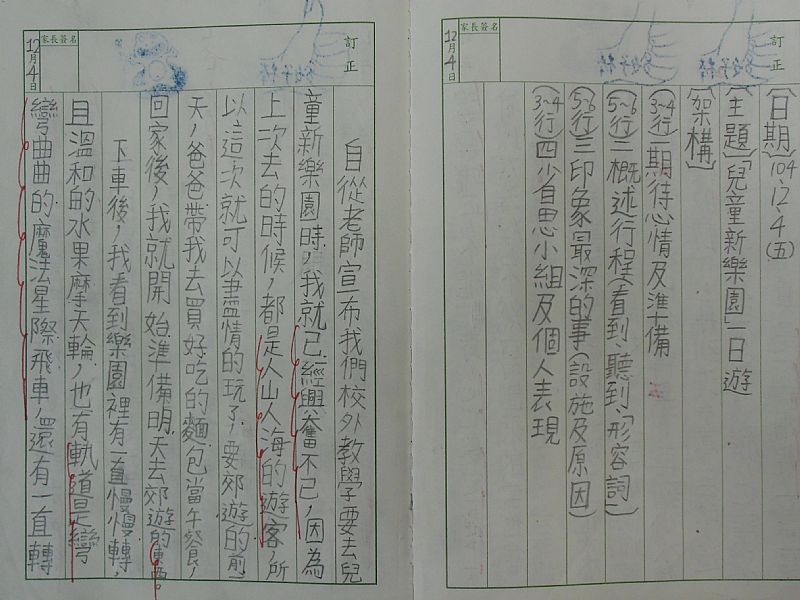 訂正
家長簽名
12月4日
(日期)104.12.4(五)
(主題)「兒童新樂園」一日遊
(架構)
(3~4行)一期待心情及準備
(5~6行)二概述行程(看到、聽到、「形容詞」)
(5~6行)三印象最深的事(設施及原因)
(3~4行)四少自思小組及個人表現
訂正
家長簽名
12月4日
自從老師宣布我們校外教學要去兒
童新樂園時,我就已經興奮不已,因為
上次去的時候,都是人山人海的遊客,所
以這次就可以盡情的玩了,要郊遊的前一
天,爸爸帶我去買好吃的麵包當午餐,
回家後,我就開始準備明天去郊遊的東西。
下車後,我看到樂園裡有一直慢慢轉,
且溫和的水果摩天輪,也有軌道是彎
彎曲曲的魔法星際飛車,還有一直轉